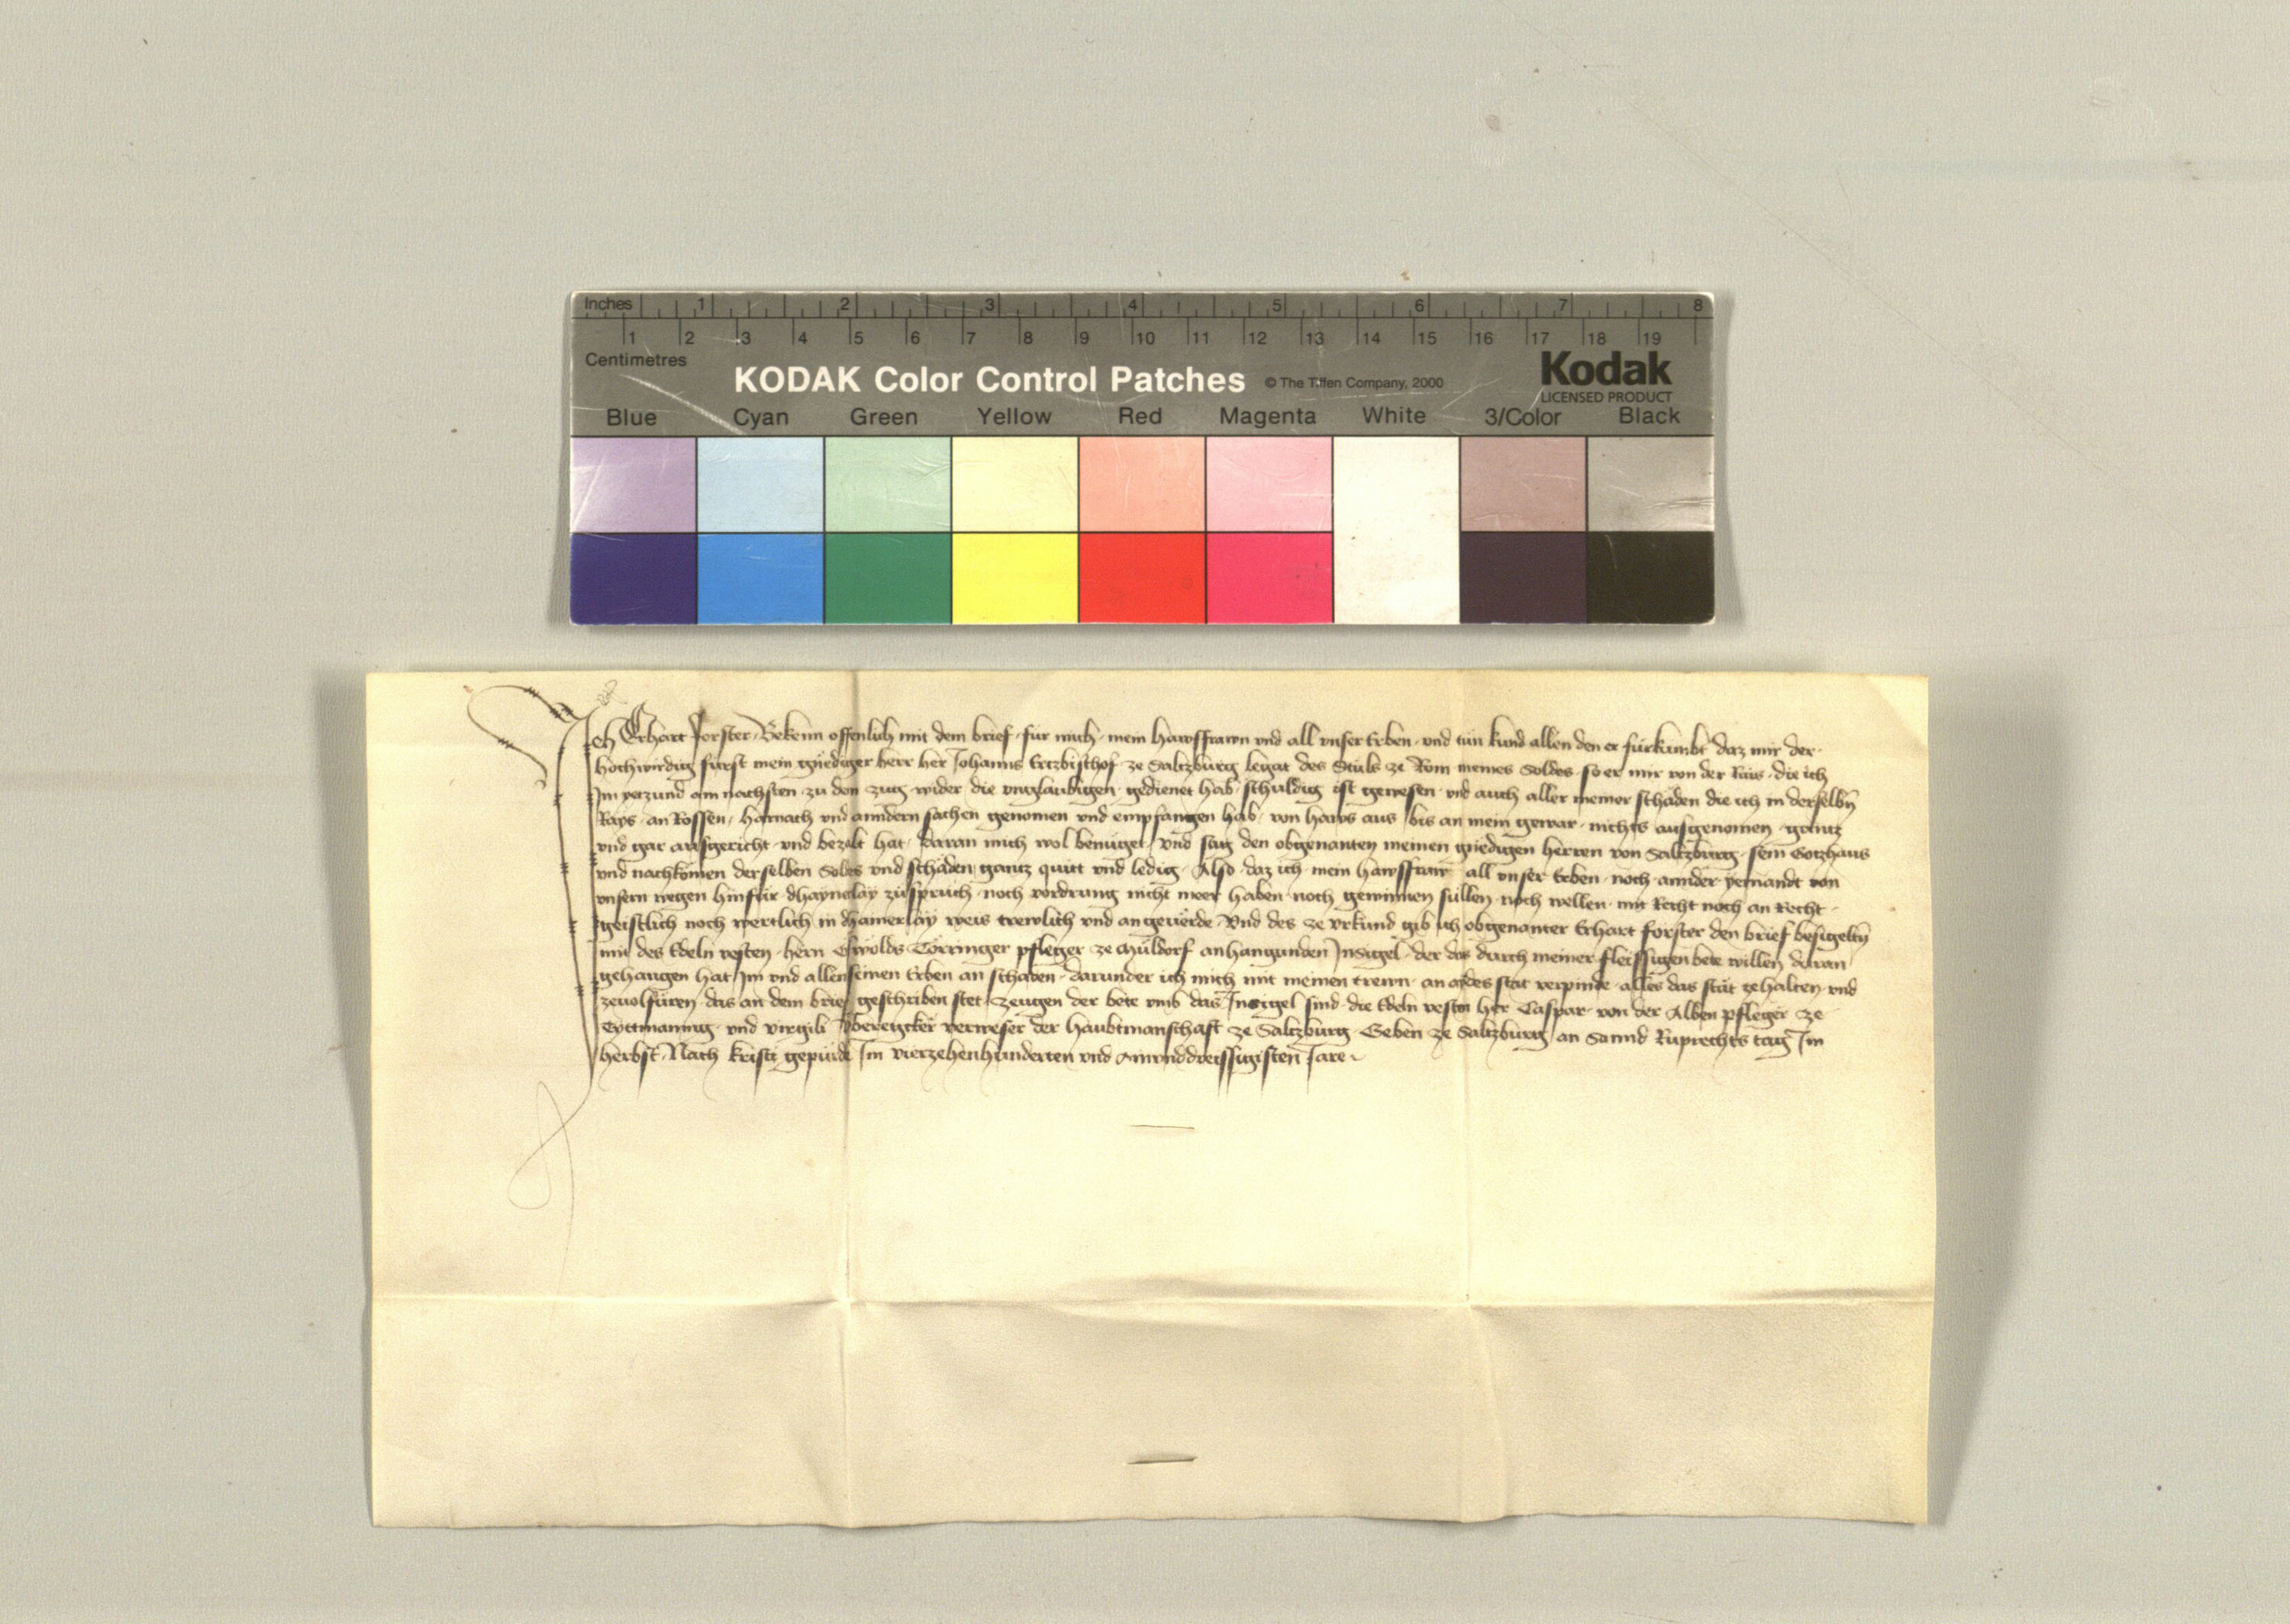 Inches 1 2 3 4 5 6 7 8
1 2 3 4 5 6 7 8 9 10 11 12 13 14 15 16 17 18 19
Centimetres
KODAK Color Control Patches © The Tiffen Company, 2000 Kodak
LICENSED PRODUCT
Blue Cyan Green Yellow Red Magenta White 3/Color Black
Ich Erhart Forster Bekenn offenlich mit dem brief für mich mein hawsfrawn vnd all vnser Erben vnd tün kund allen den er fürkumbt daz mir der
hochwirdig fürst mein gnediger herr her Johanns Ertzbischof ze Saltzburg legat des Stuls ze Rom meines Soldes so er mir von der Rais die ich
Im yetzund am nachsten zu dem zug wider die vnglaubigen gedienet hab schuldig ist gewesen vnd auch aller meiner schäden die ich in derselbn
Rays an Rossen harnach vnd anndern sachen genomen vnd empfangen hab von haws aus bis an mein gewar nichts ausgenomen gantz
vnd gar ausgericht vnd bezalt hat daran mich wol benüget vnd sag den obgenanten meinen gnedigen herren von Saltzburg sein Gotzhaus
vnd nachkomen derselben Solds vnd schäden gantz quitt vnd ledig Also daz ich mein hawsfraw all vnser Erben noch annder yemandt von
vnsern wegen hinfür dhaynerlay zuspruch noch vordrung nicht mer haben noch gewinnen süllen noch wellen mit Recht noch an Recht
geistlich noch werltlich in dhainerlay weis trewlich vnd an geuerde Vnd des ze vrkund gib ich obgenanter Erhart forster den brief besigeltn
mit des Edeln vesten hern Oswolds Törringer pfleger ze Müldorf anhangunden Insigel der das durch meiner fleissigen bete willen daran
gehangen hat Im vnd allen seinen Erben an schaden darunder ich mich mit meinen trewn an aides stat verpinde alles das stät ze halten vnd
ze uolfüren das an dem brief geschriben stet Zeugen der bete vmb das Insigel sind die Edeln vesten her Caspar von der Alben pfleger ze
Tyttmaning vnd virgili Vberegcker verweser der haubtmanschaft ze Saltzburg Geben ze Saltzburg an Sannd Ruprechts tag Im
herbst Nach kristi gepurde Im vierzehenhunderten vnd Ainvnddreissigisten Jare